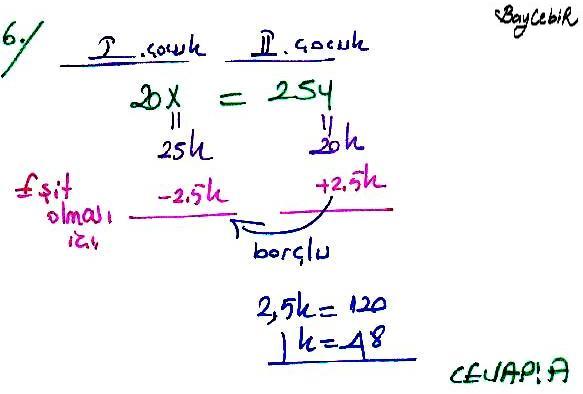 BayCebiR
6./
I. çocuk II. çocuk
20x = 25y
25k 20k
Eşit -2.5k +2.5k
olması
için
borçlu
2,5k = 120
k = 48
CEVAP: A